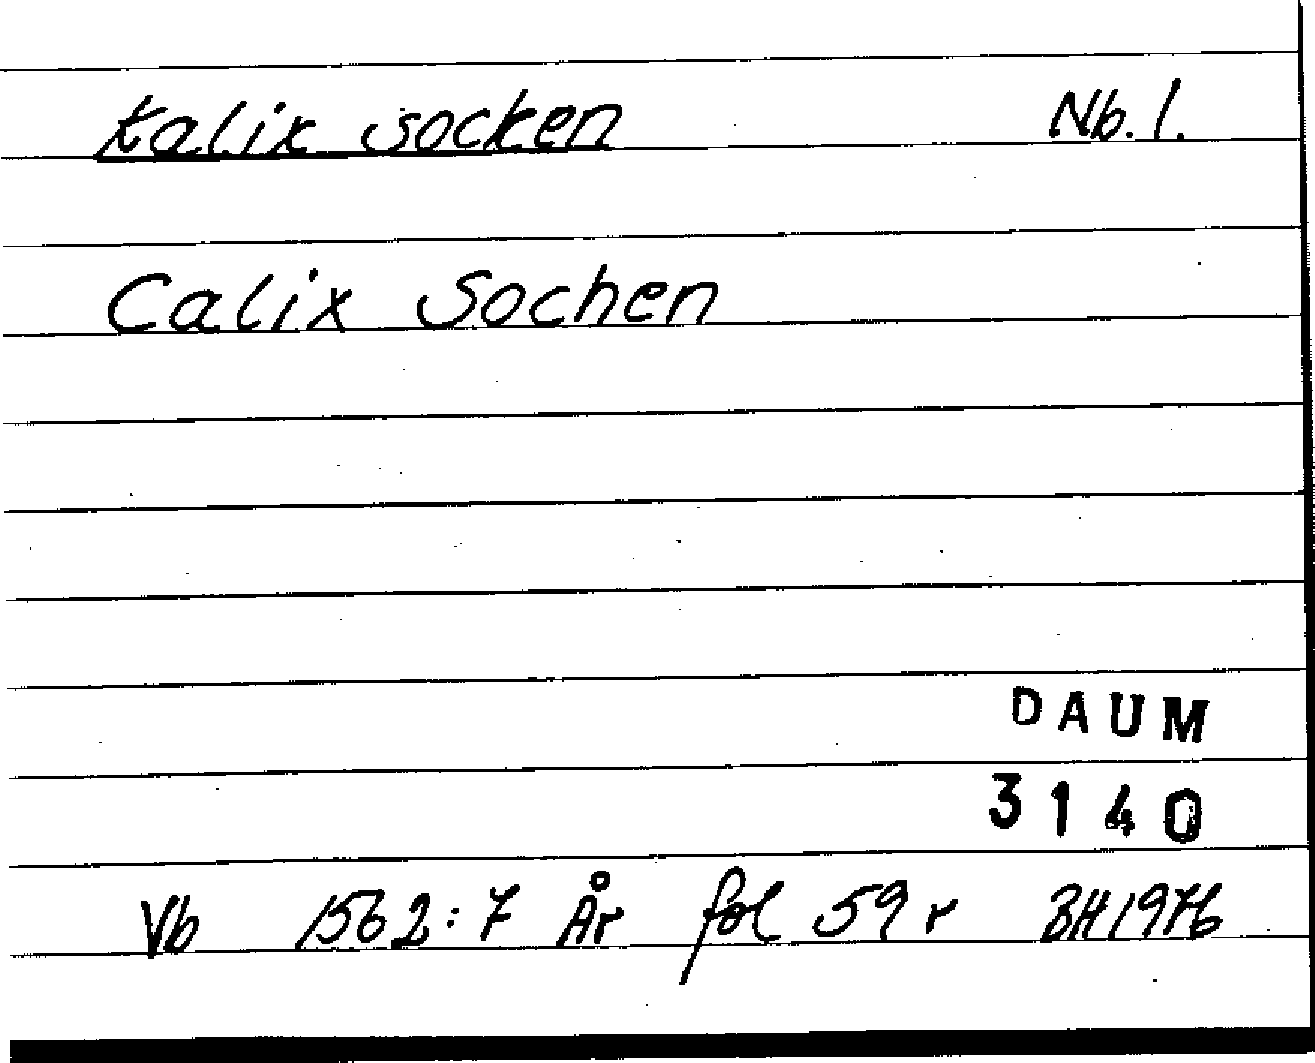 Kalix socken Nb. l.
Calix Sochen
DAUM
3140
Vb 1562:7 År fol 59 r BH 1976